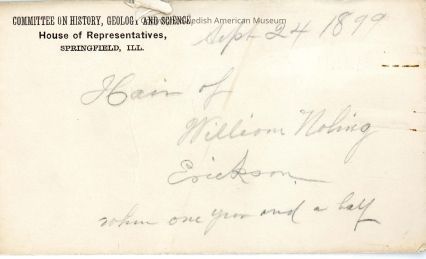 COMMITTEE ON HISTORY, GEOLOGY AND SCIENCE
Swedish American Museum
House of Representatives,
SPRINGFIELD, ILL.
Sept 24 1899
Hair of
William Noling
Erickson
when one year and a half